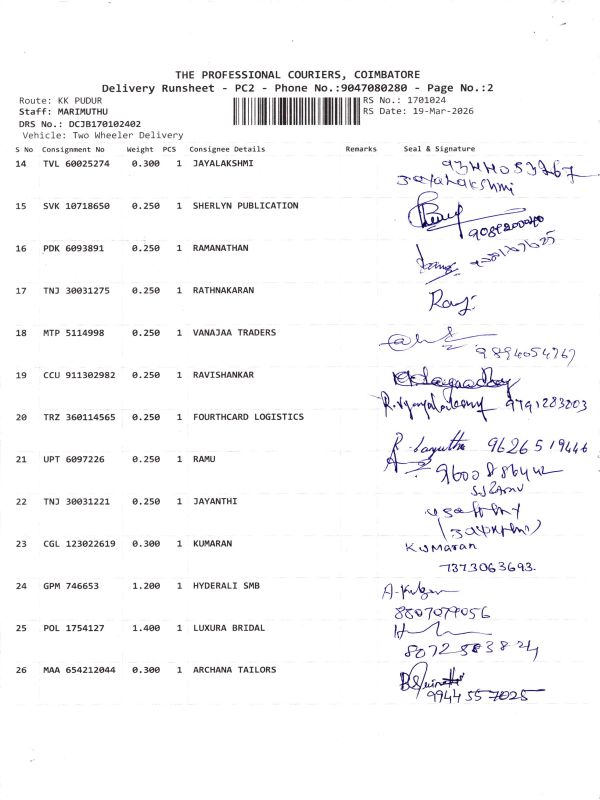 THE PROFESSIONAL COURIERS, COIMBATORE
Delivery Runsheet - PC2 - Phone No.:9047080280 - Page No.:2
Route: KK PUDUR RS No.: 1701024
Staff: MARIMUTHU RS Date: 19-Mar-2026
DRS No.: DCJB170102402
Vehicle: Two Wheeler Delivery
S No Consignment No Weight PCS Consignee Details Remarks Seal & Signature
14 TVL 60025274 0.300 1 JAYALAKSHMI
Jayalakshmi
15 SVK 10718650 0.250 1 SHERLYN PUBLICATION
16 PDK 6093891 0.250 1 RAMANATHAN
17 TNJ 30031275 0.250 1 RATHNAKARAN
18 MTP 5114998 0.250 1 VANAJAA TRADERS
9894054767
19 CCU 911302982 0.250 1 RAVISHANKAR
9791283803
20 TRZ 360114565 0.250 1 FOURTHCARD LOGISTICS
9626519446
21 UPT 6097226 0.250 1 RAMU
22 TNJ 30031221 0.250 1 JAYANTHI
23 CGL 123022619 0.300 1 KUMARAN
KUMARAN
7373063693.
24 GPM 746653 1.200 1 HYDERALI SMB
8807079056
25 POL 1754127 1.400 1 LUXURA BRIDAL
26 MAA 654212044 0.300 1 ARCHANA TAILORS
9944557025